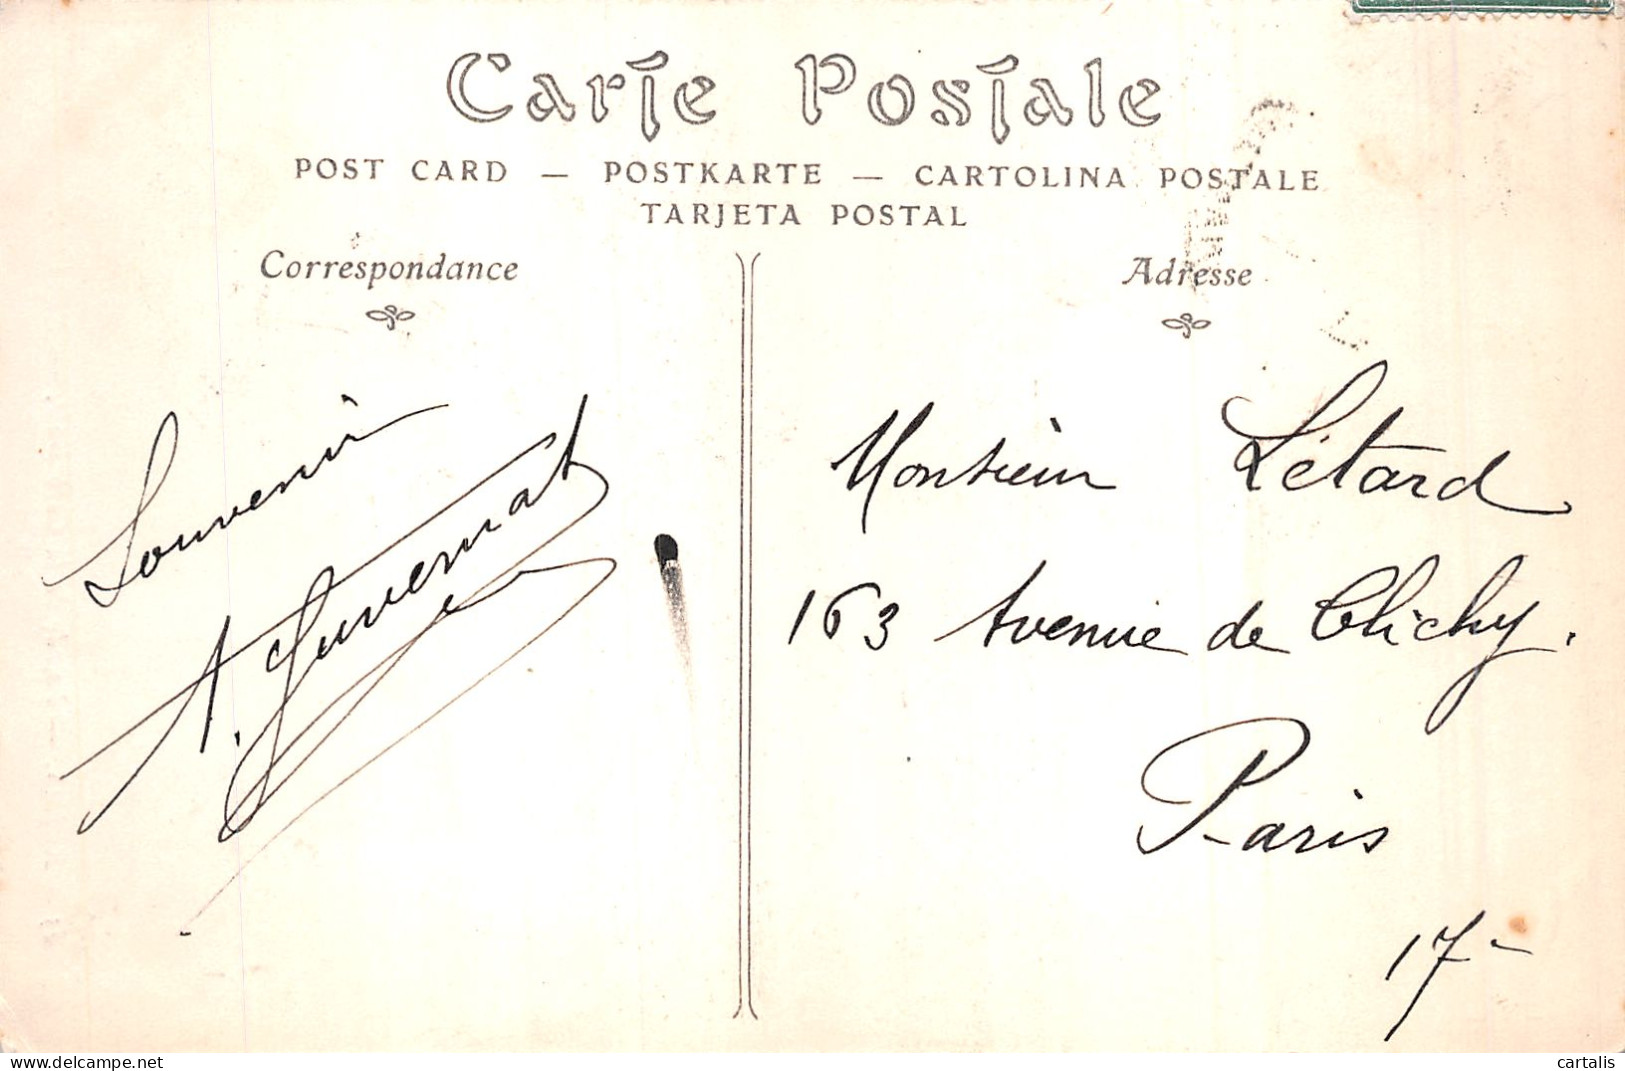 Carte Postale
POST CARD — POSTKARTE — CARTOLINA POSTALE
TARJETA POSTAL
Correspondance
Adresse
Souvenir
A. Juvernat
Monsieur Létard
163 Avenue de Clichy.
Paris
17-
delcampe.net
cartalis